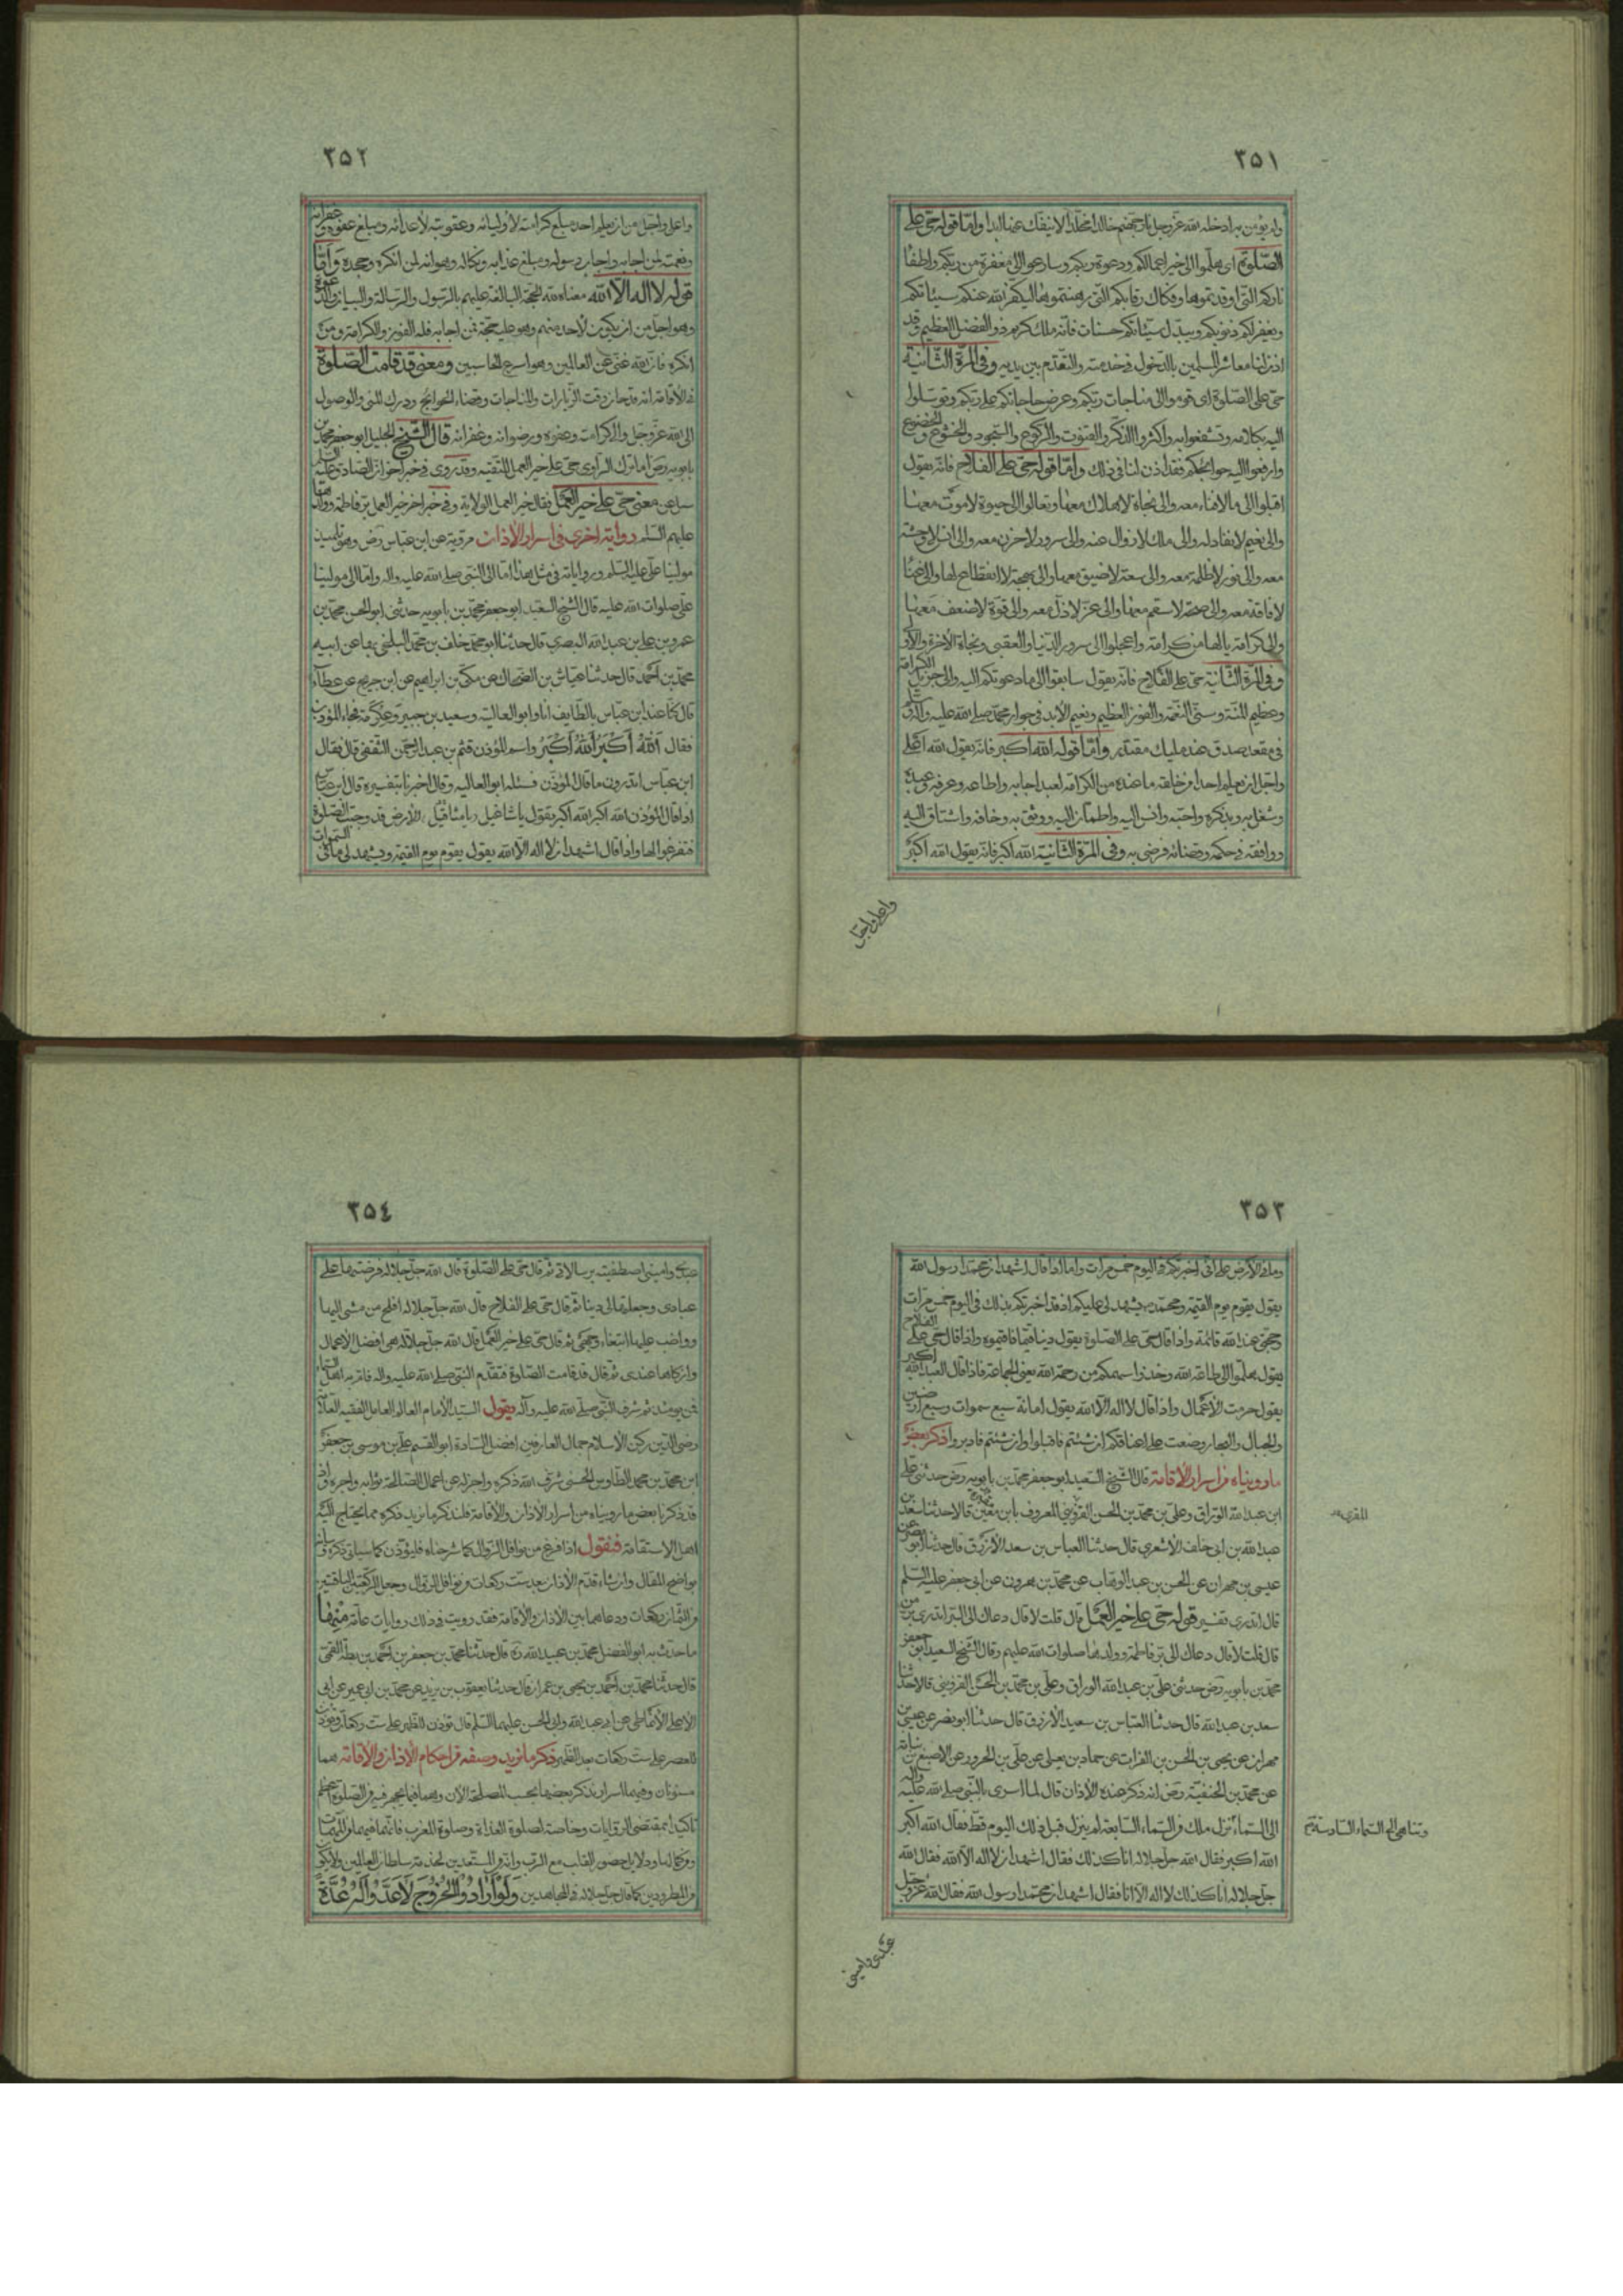 ٣٥١
ولم يؤمن به ادخله الله عز وجل نار جهنم خالدا مخلدا لا ينفك عنها ابدا واما قوله حى على
الصلوة اى هلموا الى خير اعمالكم ودعوة ربكم وسارعوا الى مغفرة من ربكم واطفاء
ناركم التى اوقدتموها وفكاك رقابكم التى رهنتموها ليكفر الله عنكم سيئاتكم
ويغفر لكم ذنوبكم ويبدل سيئاتكم حسنات فانه ملك كريم ذو الفضل العظيم وقد
اذن لنا معاشر المسلمين بالدخول فى خدمته والتقدم بين يديه وفى المرة الثانية
حى على الصلوة اى قوموا الى مناجات ربكم وعرض حاجاتكم على ربكم وتوسلوا
اليه بكلامه وتشفعوا به واكثروا الذكر والقنوت والركوع والسجود والخشوع والخضوع
وارفعوا اليه حوائجكم فقد اذن لنا فى ذلك واما قوله حى على الفلاح فانه يقول
اقبلوا الى ما لا فناء معه والى نجاة لا هلاك معها وتعالوا الى حيوة لا موت معها
والى نعيم لا نفاد له والى ملك لا زوال عنه والى سرور لا حزن معه والى انس لا وحشة
معه والى نور لا ظلمة معه والى سعة لا ضيق معها والى بهجة لا انقطاع لها والى غنا
لا فاقة معه والى صحة لا سقم معها والى عز لا ذل معه والى قوة لا ضعف معها
والى كرامة يا لها من كرامة واعجلوا الى سرور الدنيا والعقبى ونجاة الاخرة والاولى
وفى المرة الثانية حى على الفلاح فانه يقول سابقوا الى ما دعوتكم اليه والى جزيل الكرامة
وعظيم المنة وسنى النعمة والفوز العظيم ونعيم الابد فى جوار محمد صلى الله عليه واله
فى مقعد صدق عند مليك مقتدر واما قوله الله اكبر فانه يقول الله اعلى
واجل ان يعلم احد من خلقه ما عنده من الكرامة لعبد اجابه واطاعه وعرفه وعبده
وشغل به وبذكره واحبه وانس اليه واطمأن اليه ووثق به وخافه واشتاق اليه
ووافقه فى حكمه وقضائه فرضى به وفى المرة الثانية الله اكبر فانه يقول الله اكبر
واعلى واجل
٣٥٢
واعلى واجل من ان يعلم احد مبلغ كرامته لاوليائه وعقوبته لاعدائه ومبلغ عفوه وغفرانه
ونعمته لمن اجابه واجاب رسوله ومبلغ عذابه ونكاله وهوانه لمن انكره وجحده واما
قوله لا اله الا الله معناه لله الحجة البالغة عليهم بالرسول والرسالة والبيان والدعوة
وهو اجل من ان يكون لاحد منهم وهو عليه حجة فمن اجابه فله الفوز والكرامة ومن
انكره فان الله غنى عن العالمين وهو اسرع الحاسبين ومعنى قد قامت الصلوة
فى الاقامة اى قد حان وقت الزيارات والمناجات وقضاء الحوائج ودرك المنى والوصول
الى الله عز وجل والى كرامته وعفوه ورضوانه وغفرانه قال الشيخ الجليل ابو جعفر محمد بن
بابويه رض انما ترك الراوى حى على خير العمل للتقية وقد روى فى خبر اخر ان الصادق عليه السلم
سئل عن معنى حى على خير العمل فقال خير العمل الولاية وفى خبر اخر خير العمل بر فاطمة وولدها
عليهم السلم رواية اخرى فى اسرار الأذان مروية عن ابن عباس رض وهو تلميذ
مولينا على عليه السلم ورواياته فى مثل هذا اما الى النبى صلى الله عليه واله واما الى مولينا
على صلوات الله عليه قال الشيخ السعيد ابو جعفر محمد بن بابويه حدثنى ابو الحسن محمد بن
عمرو بن على بن عبد الله البصرى قال حدثنا ابو محمد خلف بن محمد البلخى بها عن ابيه
محمد بن احمد قال حدثنا عياش بن الضحاك عن مكى بن ابراهيم عن ابن جريج عن عطاء
قال كنا عند ابن عباس بالطايف انا وابو العالية وسعيد بن جبير وعكرمة فجاء المؤذن
فقال الله اكبر الله اكبر واسم المؤذن قثم بن عبد الرحمن الثقفى قال فقال
ابن عباس اتدرون ما قال المؤذن فسئله ابو العاليه وقال اخبرنا بتفسيره قال ابن عباس
اذا قال المؤذن الله اكبر الله اكبر يقول يا مشاغيل الارض قد وجبت الصلوة
فتفرغوا لها واذا قال اشهد ان لا اله الا الله يقول يقوم يوم القيمة ويشهد لى ما فى السموات
٣٥٣
وما فى الارض على انى اخبرتكم فى اليوم خمس مرات واما اذا قال اشهد ان محمدا رسول الله
يقول يقوم يوم القيمة ومحمد يشهد لى عليكم انى قد اخبرتكم بذلك فى اليوم خمس مرات
وحجتى عند الله قائمة واذا قال حى على الصلوة يقول دينا قيما فاقيموه واذا قال حى على الفلاح
يقول هلموا الى طاعة الله وخذوا سهمكم من رحمة الله يعنى الجماعة فاذا قال العبد الله اكبر
يقول حرمت الاعمال واذا قال لا اله الا الله يقول امانة سبع سموات وسبع ارضين
والجبال والبحار وضعت على اعناقكم ان شئتم فاقبلوا وان شئتم فادبروا ذكر بعض
ما رويناه فى اسرار الاقامة قال الشيخ السعيد ابو جعفر محمد بن بابويه رض حدثنى على
ابن عبد الله الوراق وعلى بن محمد بن الحسن القزوينى المعروف بابن مقبرة قالا حدثنا سعد بن
عبد الله بن ابى خلف الاشعرى قال حدثنا العباس بن سعد الازرق قال حدثنا ابو نصر عن
عيسى بن مهران عن الحسن بن عبد الوهاب عن محمد بن مهرون عن ابى جعفر عليه السلم
قال اتدرى تفسير قوله حى على خير العمل قال قلت لا قال دعاك الى البر اتدرى بر من
قال قلت لا قال دعاك الى بر فاطمة وولدها صلوات الله عليهم وقال الشيخ السعيد ابو جعفر
محمد بن بابويه رض حدثنى على بن عبد الله الوراق وعلى بن محمد بن الحسن القزوينى قالا حدثنا
سعد بن عبد الله قال حدثنا العباس بن سعيد الازرق قال حدثنا ابو نصر عن عيسى بن
مهران عن يحيى بن الحسن بن الفرات عن حماد بن يعلى عن على بن الحزور عن الاصبغ بن نباتة
عن محمد بن الحنفية رض انه ذكر عنده الأذان قال لما اسرى بالنبى صلى الله عليه واله
الى السماء نزل ملك من السماء السابعة لم ينزل قبل ذلك اليوم قط فقال الله اكبر
وتناهى الى السماء السادسة
الله اكبر فقال الله جل جلاله انا كذلك فقال اشهد ان لا اله الا الله فقال الله
جل جلاله انا كذلك لا اله الا انا فقال اشهد ان محمدا رسول الله فقال الله عز وجل
عبدى وامينى
٣٥٤
عبدى وامينى اصطفيته برسالاتى ثم قال حى على الصلوة قال الله جل جلاله فرضتها على
عبادى وجعلتها لى دينا ثم قال حى على الفلاح قال الله جل جلاله افلح من مشى اليها
وواضب عليها ابتغاء وجهى ثم قال حى على خير العمل قال الله جل جلاله هى افضل الاعمال
وازكاها عندى ثم قال قد قامت الصلوة فتقدم النبى صلى الله عليه واله فام اهل السماء
فمن يومئذ تم شرف النبى صلى الله عليه وآله يقول السيد الامام العالم العامل الفقيه العلامة
رضى الدين ركن الاسلام جمال العارفين افضل السادة ابو القسم على بن موسى بن جعفر
ابن محمد بن محمد الطاوس الحسنى شرف الله ذكره
قد ذكرنا بعض ما رويناه من اسرار الأذان والأقامة فلنذكر ما نريد ذكره مما يحتاج اليه
اهل الاستقامة فنقول اذا فرغ من نوافل الزوال كما شرحناه فليؤذن كما سياتى ذكره
بواضح المقال وان شاء قدم الأذان بعد ست ركعات من نوافل الزوال وجعل الركعتين الباقيتين
من الثمان ركعات ودعاهما بين الأذان والأقامة فقد رويت فى ذلك روايات عامة منها
ما حدث به ابو الفضل محمد بن عبيد الله ره قال حدثنا محمد بن جعفر بن احمد بن بطة القمى
قال حدثنا محمد بن احمد بن يحيى بن عمران قال حدثنا يعقوب بن يزيد عن محمد بن ابى عمير عن ابى
على الانماطى عن ابى عبد الله وابى الحسن عليهما السلم قال تؤذن للظهر على ست ركعات وتؤذن
للعصر على ست ركعات بعد الظهر ذكر ما نريد وصفه من احكام الأذان والأقامة هما
مسنونان وفيهما اسرار نذكر بعضها بحسب المصلحة الان وهما فيما يجهر فيه من الصلوة اعظم
تاكيدا بمقتضى الروايات وخاصة لصلوة الغداة وصلوة المغرب فانهما فيهما من المهمات
من المطرودين كما قال جل جلاله فى المجاهدين ولو ارادوا الخروج لاعدوا له عدة